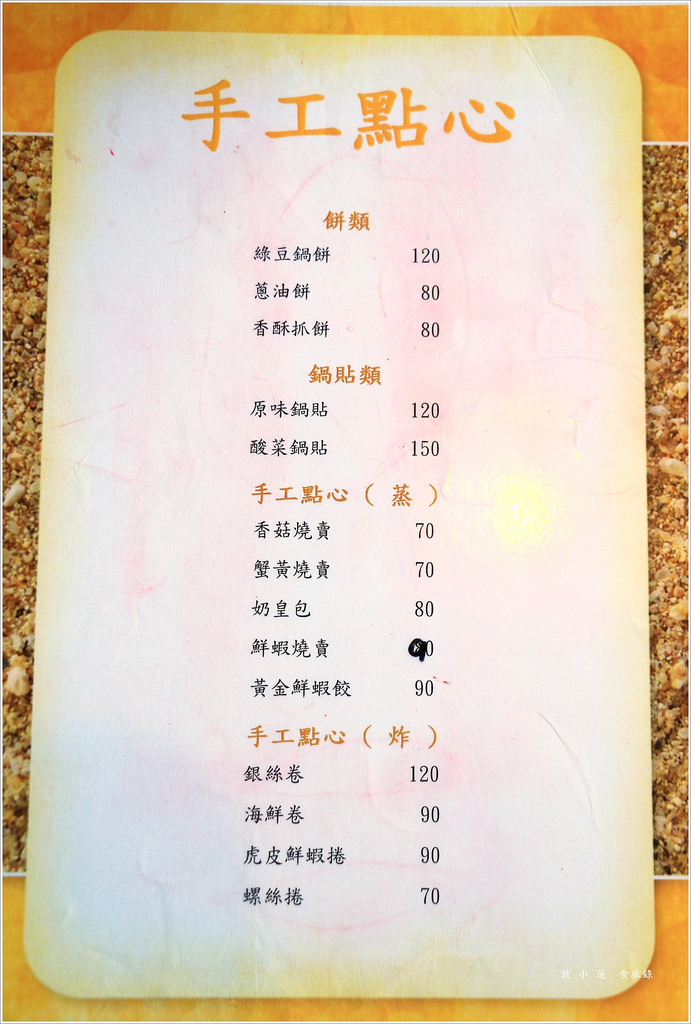 手工點心
餅類
綠豆鍋餅 120
蔥油餅 80
香酥抓餅 80
鍋貼類
原味鍋貼 120
酸菜鍋貼 150
手工點心 ( 蒸 )
香菇燒賣 70
蟹黃燒賣 70
奶皇包 80
鮮蝦燒賣 90
黃金鮮蝦餃 90
手工點心 ( 炸 )
銀絲卷 120
海鮮卷 90
虎皮鮮蝦捲 90
螺絲捲 70
小蓮 食旅錄